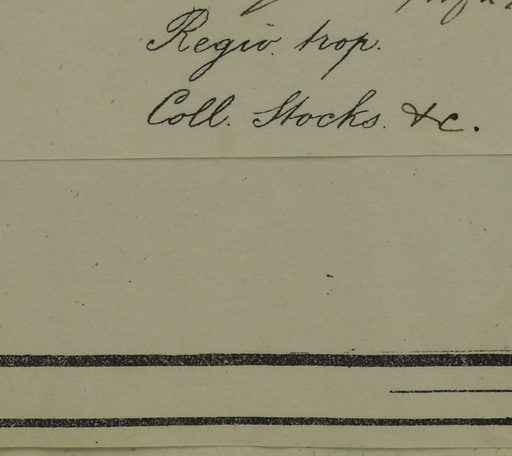 Regio trop.
Coll. Stocks. &c.